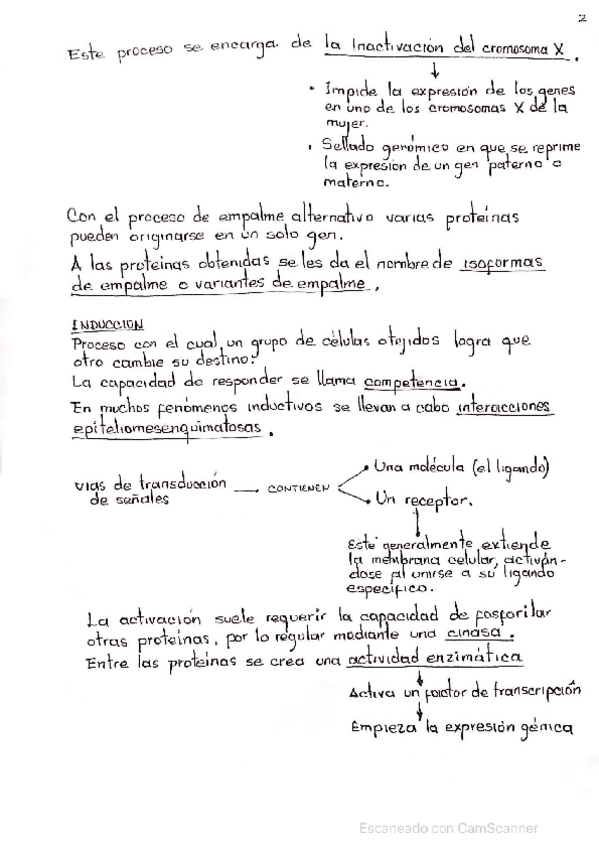 2
Este proceso se encarga de la Inactivación del cromosoma X.
• Impide la expresión de los genes
en uno de los cromosomas X de la
mujer.
• Sellado genómico en que se reprime
la expresión de un gen paterno o
materno.
Con el proceso de empalme alternativo varias proteínas
pueden originarse en un solo gen.
A las proteínas obtenidas se les da el nombre de isoformas
de empalme o variantes de empalme.
INDUCCION
Proceso con el cual un grupo de células o tejidos logra que
otro cambie su destino.
La capacidad de responder se llama competencia.
En muchos fenómenos inductivos se llevan a cabo interacciones
epiteliomesenquimatosas.
Vías de transducción
de señales
CONTIENEN
Una molécula (el ligando)
Un receptor.
Este generalmente extiende
la membrana celular, activán-
dose al unirse a su ligando
específico.
La activación suele requerir la capacidad de fosforilar
otras proteínas, por lo regular mediante una cinasa.
Entre las proteínas se crea una actividad enzimática
Activa un factor de transcripción
Empieza la expresión génica
Escaneado con CamScanner